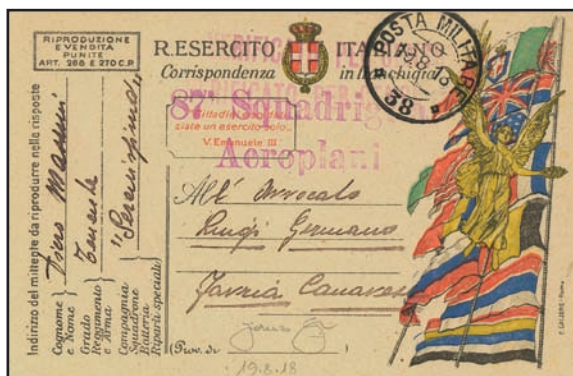 RIPRODUZIONE
E VENDITA
PUNITE
ART. 268 E 270 C.P.
R. ESERCITO ITALIANO
Corrispondenza in franchigia
POSTA MILITARE
19.8.18
38
87ª Squadriglia
Aeroplani
siate un esercito solo..
V. Emanuele III.
All' Avvocato
Luigi Germano
Favria Canavese
(Prov. di
19.8.18
Indirizzo del mittente da riprodurre nella risposta
Cognome
e Nome
Piero Massoni
Grado
Reggimento
e Arma
Tenente
Compagnia
Squadrone
Batteria
Riparti speciali
"Serenissima"